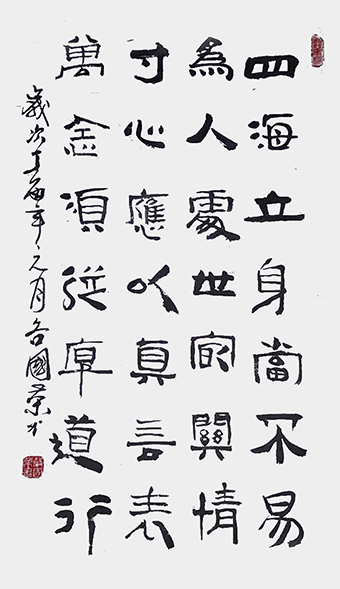 四海立身當不易
為人處世最關情
寸心應以真言表
萬念須從厚道行
歲次壬寅年元月國榮书